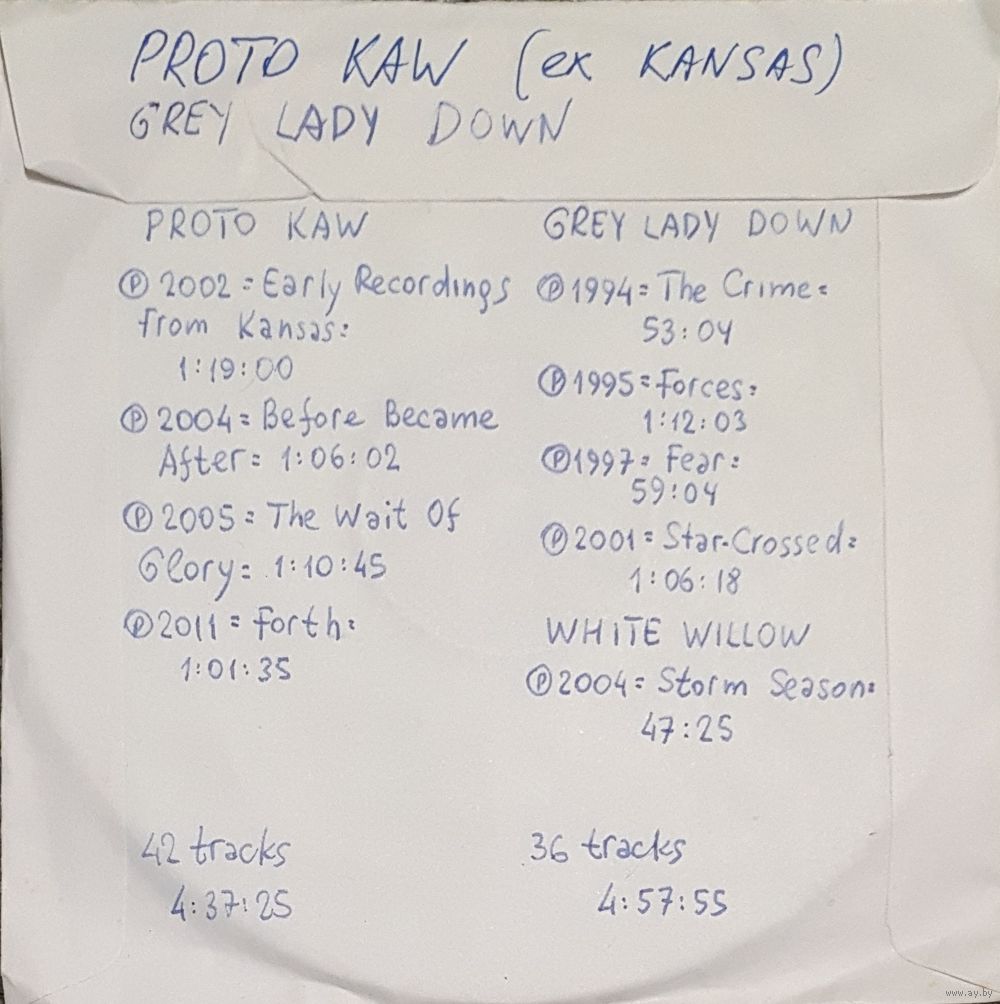 PROTO KAW (ex KANSAS)
GREY LADY DOWN
PROTO KAW
Ⓟ 2002 = Early Recordings
from Kansas:
1:19:00
Ⓟ 2004 = Before Became
After = 1:06:02
Ⓟ 2005 = The Wait Of
Glory = 1:10:45
Ⓟ 2011 = Forth:
1:01:35
42 tracks
4:37:25
GREY LADY DOWN
Ⓟ 1994 = The Crime =
53:04
Ⓟ 1995 = Forces:
1:12:03
Ⓟ 1997 = Fear =
59:04
Ⓟ 2001 = Star-Crossed =
1:06:18
WHITE WILLOW
Ⓟ 2004 = Storm Season =
47:25
36 tracks
4:57:55
www.ay.by